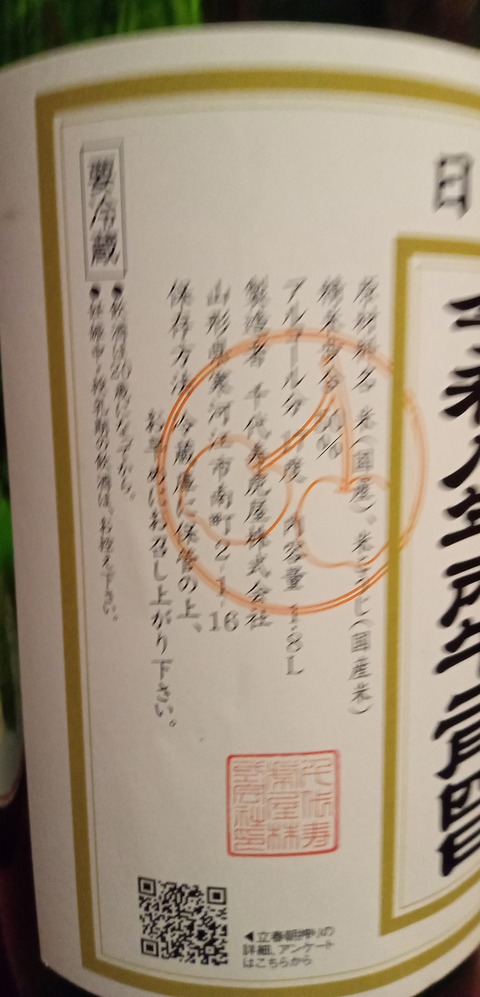 日
年丙午二月四日
原材料名 米(国産)、米こうじ(国産米)
精米歩合 50%
アルコール分 度 内容量 1.8L
製造者 千代寿虎屋株式会社
山形県寒河江市南町2-1-16
保存方法 冷蔵庫に保管の上、
お早めにお召し上がり下さい。
要冷蔵
●飲酒は20歳になってから。
●妊娠中や授乳期の飲酒は、お控え下さい。
千代寿
虎屋株
式会社印
◀立春朝搾りの
詳細、アンケート
はこちらから